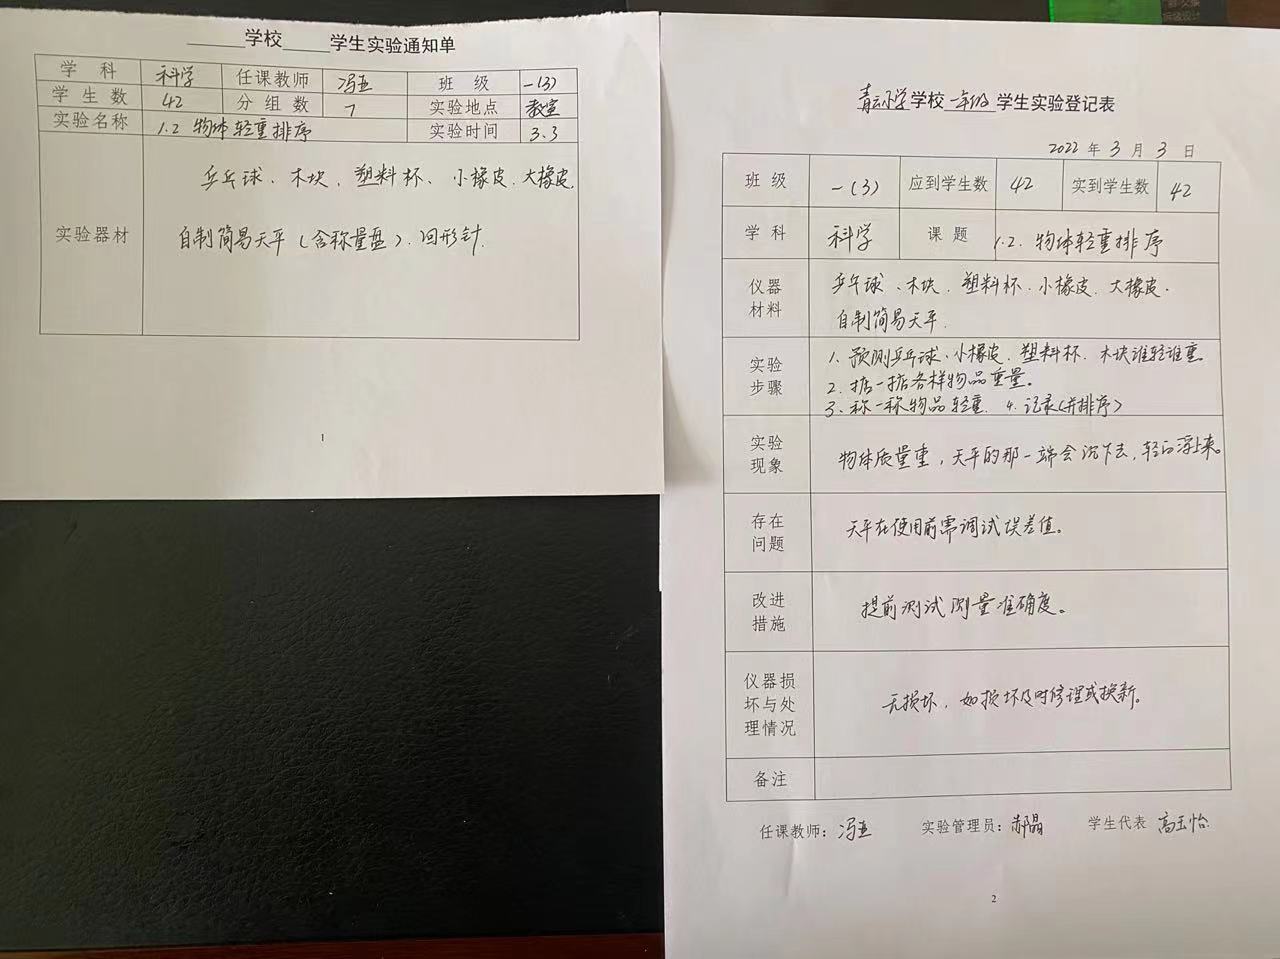 学校 学生实验通知单
学科 科学 任课教师 冯亚 班级 一(3)
学生数 42 分组数 7 实验地点 教室
实验名称 1.2 物体轻重排序 实验时间 3.3
实验器材
乒乓球、木块、塑料杯、小橡皮、大橡皮.
自制简易天平(含称量盘)、回形针.
1
青云小学学校一年级学生实验登记表
2022年3月3日
班级 一(3) 应到学生数 42 实到学生数 42
学科 科学 课题 1.2.物体轻重排序
仪器
材料
乒乓球、木块、塑料杯、小橡皮、大橡皮.
自制简易天平.
实验
步骤
1、预测乒乓球、小橡皮、塑料杯、木块谁轻谁重。
2.掂一掂各样物品重量。
3、称一称物品轻重. 4.记录(并排序)
实验
现象
物体质量重,天平的那一端会沉下去,轻的浮上来。
存在
问题
天平在使用前需调试误差值。
改进
措施
提前测试测量准确度。
仪器损
坏与处
理情况
无损坏,如损坏及时修理或换新。
备注
任课教师:冯亚 实验管理员:郝晶 学生代表 高玉怡
2